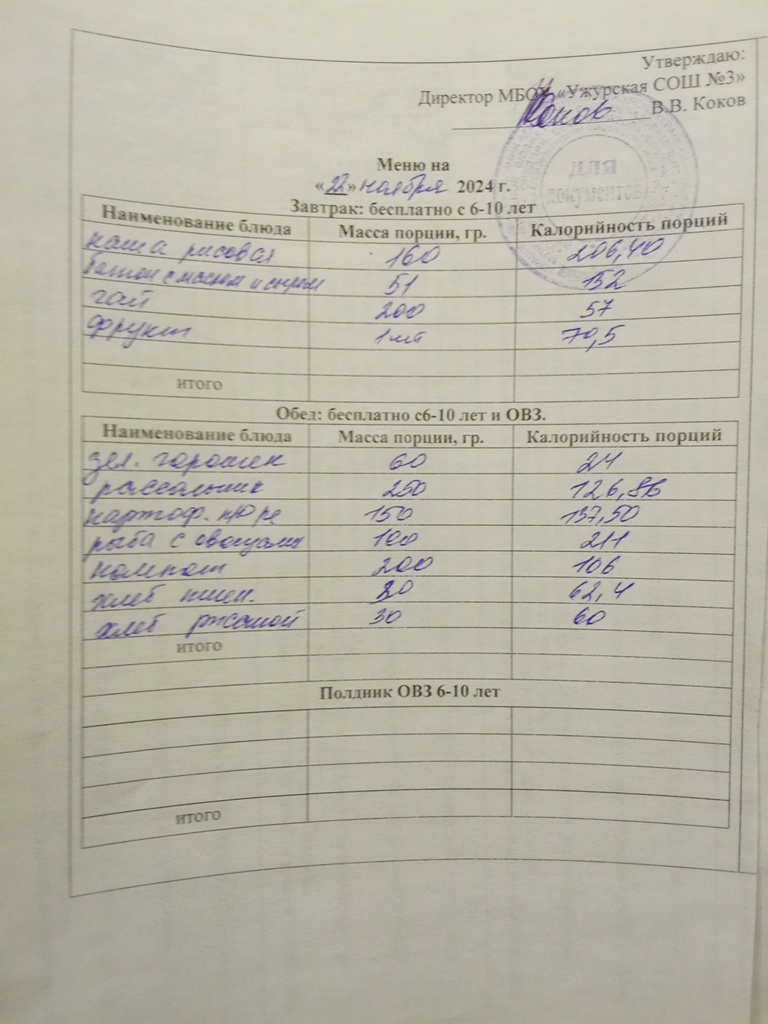 Утверждаю:
Директор МБОУ «Ужурская СОШ №3»
Коков В.В. Коков
ДЛЯ
ДОКУМЕНТОВ
Меню на
«22» ноября 2024 г.
Завтрак: бесплатно с 6-10 лет
Наименование блюда Масса порции, гр. Калорийность порций
каша рисовая 160 206,40
батон с маслом и сыром 51 152
чай 200 57
фрукт 1 шт 70,5
итого
Обед: бесплатно с6-10 лет и ОВЗ.
Наименование блюда Масса порции, гр. Калорийность порций
зел. горошек 60 24
рассольник 250 126,86
картоф. пюре 150 137,50
рыба с овощами 100 211
компот 200 106
хлеб пшен. 30 62,4
хлеб ржаной 30 60
итого
Полдник ОВЗ 6-10 лет
итого